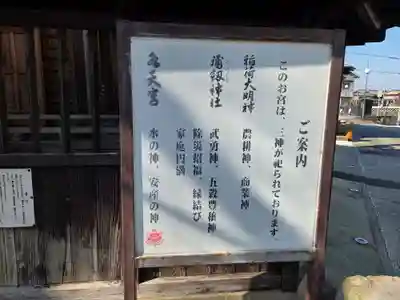 ご案内
このお宮は、三神が祀られております
稲荷大明神
農耕神、商業神
瀧劔神社
武勇神、五穀豊穣神
除災招福、縁結び
家庭円満
水天宮
水の神、安産の神